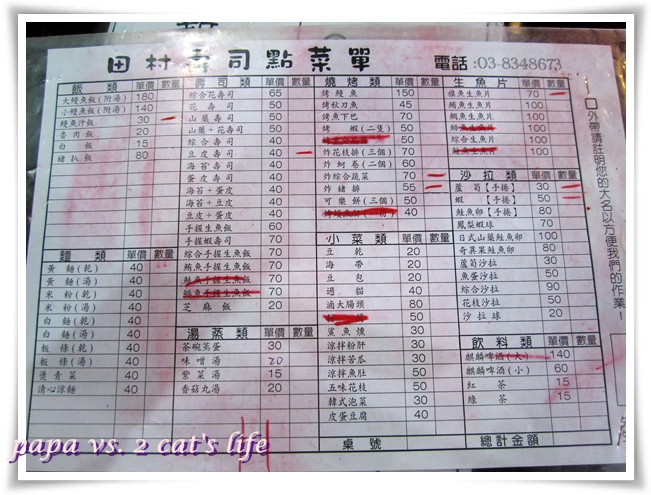 田村壽司點菜單
電話:03-8348673
飯類 單價 數量
大鰻魚飯(附湯) 180
小鰻魚飯(附湯) 140
鰻魚汁飯 30
魯肉飯 20
白飯 15
豬扒飯 80
麵類 單價 數量
黃麵(乾) 40
黃麵(湯) 40
米粉(乾) 40
米粉(湯) 40
白麵(乾) 40
白麵(湯) 40
板條(乾) 40
板條(湯) 40
燙青菜 40
清心涼麵 40
壽司類 單價 數量
綜合花壽司 65
花壽司 50
山藥壽司 50
山藥+花壽司 50
綜合壽司 40
豆皮壽司 40
海苔壽司 40
蛋皮壽司 40
海苔+蛋皮 40
海苔+豆皮 40
豆皮+蛋皮 40
手握壽司 60
手握蝦壽司 40
綜合手握生魚飯 70
鮪魚手握生魚飯 70
手握生魚飯 70
手握生魚飯 70
芝麻飯 20
湯蒸類 單價 數量
茶碗蒸蛋 30
味噌湯 20
紫菜湯 15
香菇丸湯 20
燒烤類 單價 數量
烤鰻魚 150
烤秋刀魚 45
烤魚下巴 70
烤蝦(二隻) 50
50
炸花枝排(三個) 70
炸蚵卷(二個) 60
炸綜合蔬菜 70
炸豬排 55
可樂餅(三個) 50
40
小菜類 單價 數量
豆乾 20
海帶 20
豆包 20
過貓 40
滷大腸頭 80
50
鯊魚燻 30
涼拌粉肝 30
涼拌苦瓜 30
涼拌魚肚 50
五味花枝 50
韓式泡菜 30
皮蛋豆腐 40
桌號
生魚片 單價 數量
旗魚生魚片 70
鮪魚生魚片 100
鯛魚生魚片 100
生魚片 100
綜合生魚片 100
生魚片 100
沙拉類 單價 數量
蘆筍【手捲】 30
蝦【手捲】 50
鮭魚卵【手捲】 80
鳳梨蝦球 70
日式山藥鮭魚卵 100
奇異果鮭魚卵 100
蘆筍沙拉 50
魚蛋沙拉 50
綜合沙拉 90
花枝沙拉 50
沙拉球 20
飲料類 單價 數量
麒麟啤酒(大) 140
麒麟啤酒(小) 60
紅茶 15
綠茶 15
總計金額
□外帶請註明您的大名以方便我們的作業!
papa vs. 2 cat's life